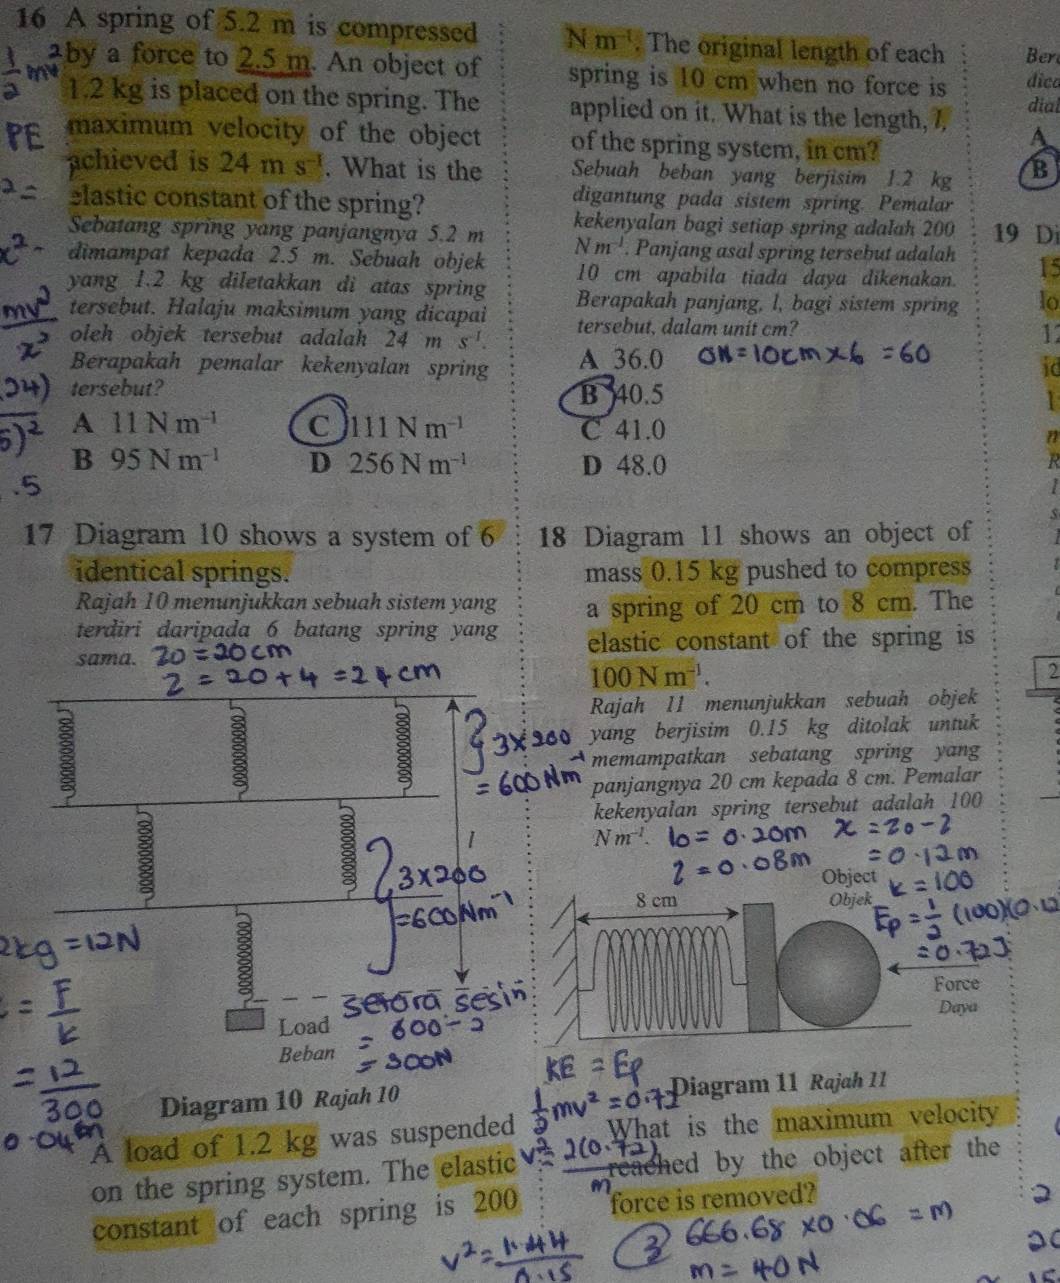 16 A spring of 5.2 m is compressed
by a force to 2.5 m. An object of
1.2 kg is placed on the spring. The
maximum velocity of the object
achieved is 24 m s⁻¹. What is the
elastic constant of the spring?
Sebatang spring yang panjangnya 5.2 m
dimampat kepada 2.5 m. Sebuah objek
yang 1.2 kg diletakkan di atas spring
tersebut. Halaju maksimum yang dicapai
oleh objek tersebut adalah 24 m s⁻¹.
Berapakah pemalar kekenyalan spring
tersebut?
A 11 N m⁻¹ C 111 N m⁻¹
B 95 N m⁻¹ D 256 N m⁻¹
½ mv²
PE
2 =
x² -
mv²
x²
24)
5)²
.5
17 Diagram 10 shows a system of 6
identical springs.
Rajah 10 menunjukkan sebuah sistem yang
terdiri daripada 6 batang spring yang
sama.
20 = 20cm
2 = 20 + 4 = 24 cm
3×200
= 600 Nm⁻¹
l
3×200
= 600 Nm⁻¹
2kg = 12N
= F/k
= 12/300
0.04m
= 600 ÷ 2
= 300N
Load
Beban
Diagram 10 Rajah 10
A load of 1.2 kg was suspended
on the spring system. The elastic
constant of each spring is 200
N m⁻¹. The original length of each
spring is 10 cm when no force is
applied on it. What is the length, l,
of the spring system, in cm?
Sebuah beban yang berjisim 1.2 kg
digantung pada sistem spring. Pemalar
kekenyalan bagi setiap spring adalah 200
N m⁻¹. Panjang asal spring tersebut adalah
10 cm apabila tiada daya dikenakan.
Berapakah panjang, l, bagi sistem spring
tersebut, dalam unit cm?
A 36.0
= 10cm × 6 = 60
B 40.5
C 41.0
D 48.0
18 Diagram 11 shows an object of
mass 0.15 kg pushed to compress
a spring of 20 cm to 8 cm. The
elastic constant of the spring is
100 N m⁻¹.
Rajah 11 menunjukkan sebuah objek
yang berjisim 0.15 kg ditolak untuk
memampatkan sebatang spring yang
panjangnya 20 cm kepada 8 cm. Pemalar
kekenyalan spring tersebut adalah 100
N m⁻¹.
lo = 0.20m
x = 20 - 2
2 = 0.08m
= 0.12m
k = 100
Ep = ½ (100)(0.12
= 0.72J
8 cm
Object
Objek
Force
Daya
KE = Ep
½ mv² = 0.72
v² = 2(0.72)
m
v² = 1.44
0.15
Diagram 11 Rajah 11
What is the maximum velocity
reached by the object after the
force is removed?
3 666.68 × 0.06 = m
m = 40N
Ber
dica
dial
A
B
19 Di
15
lo